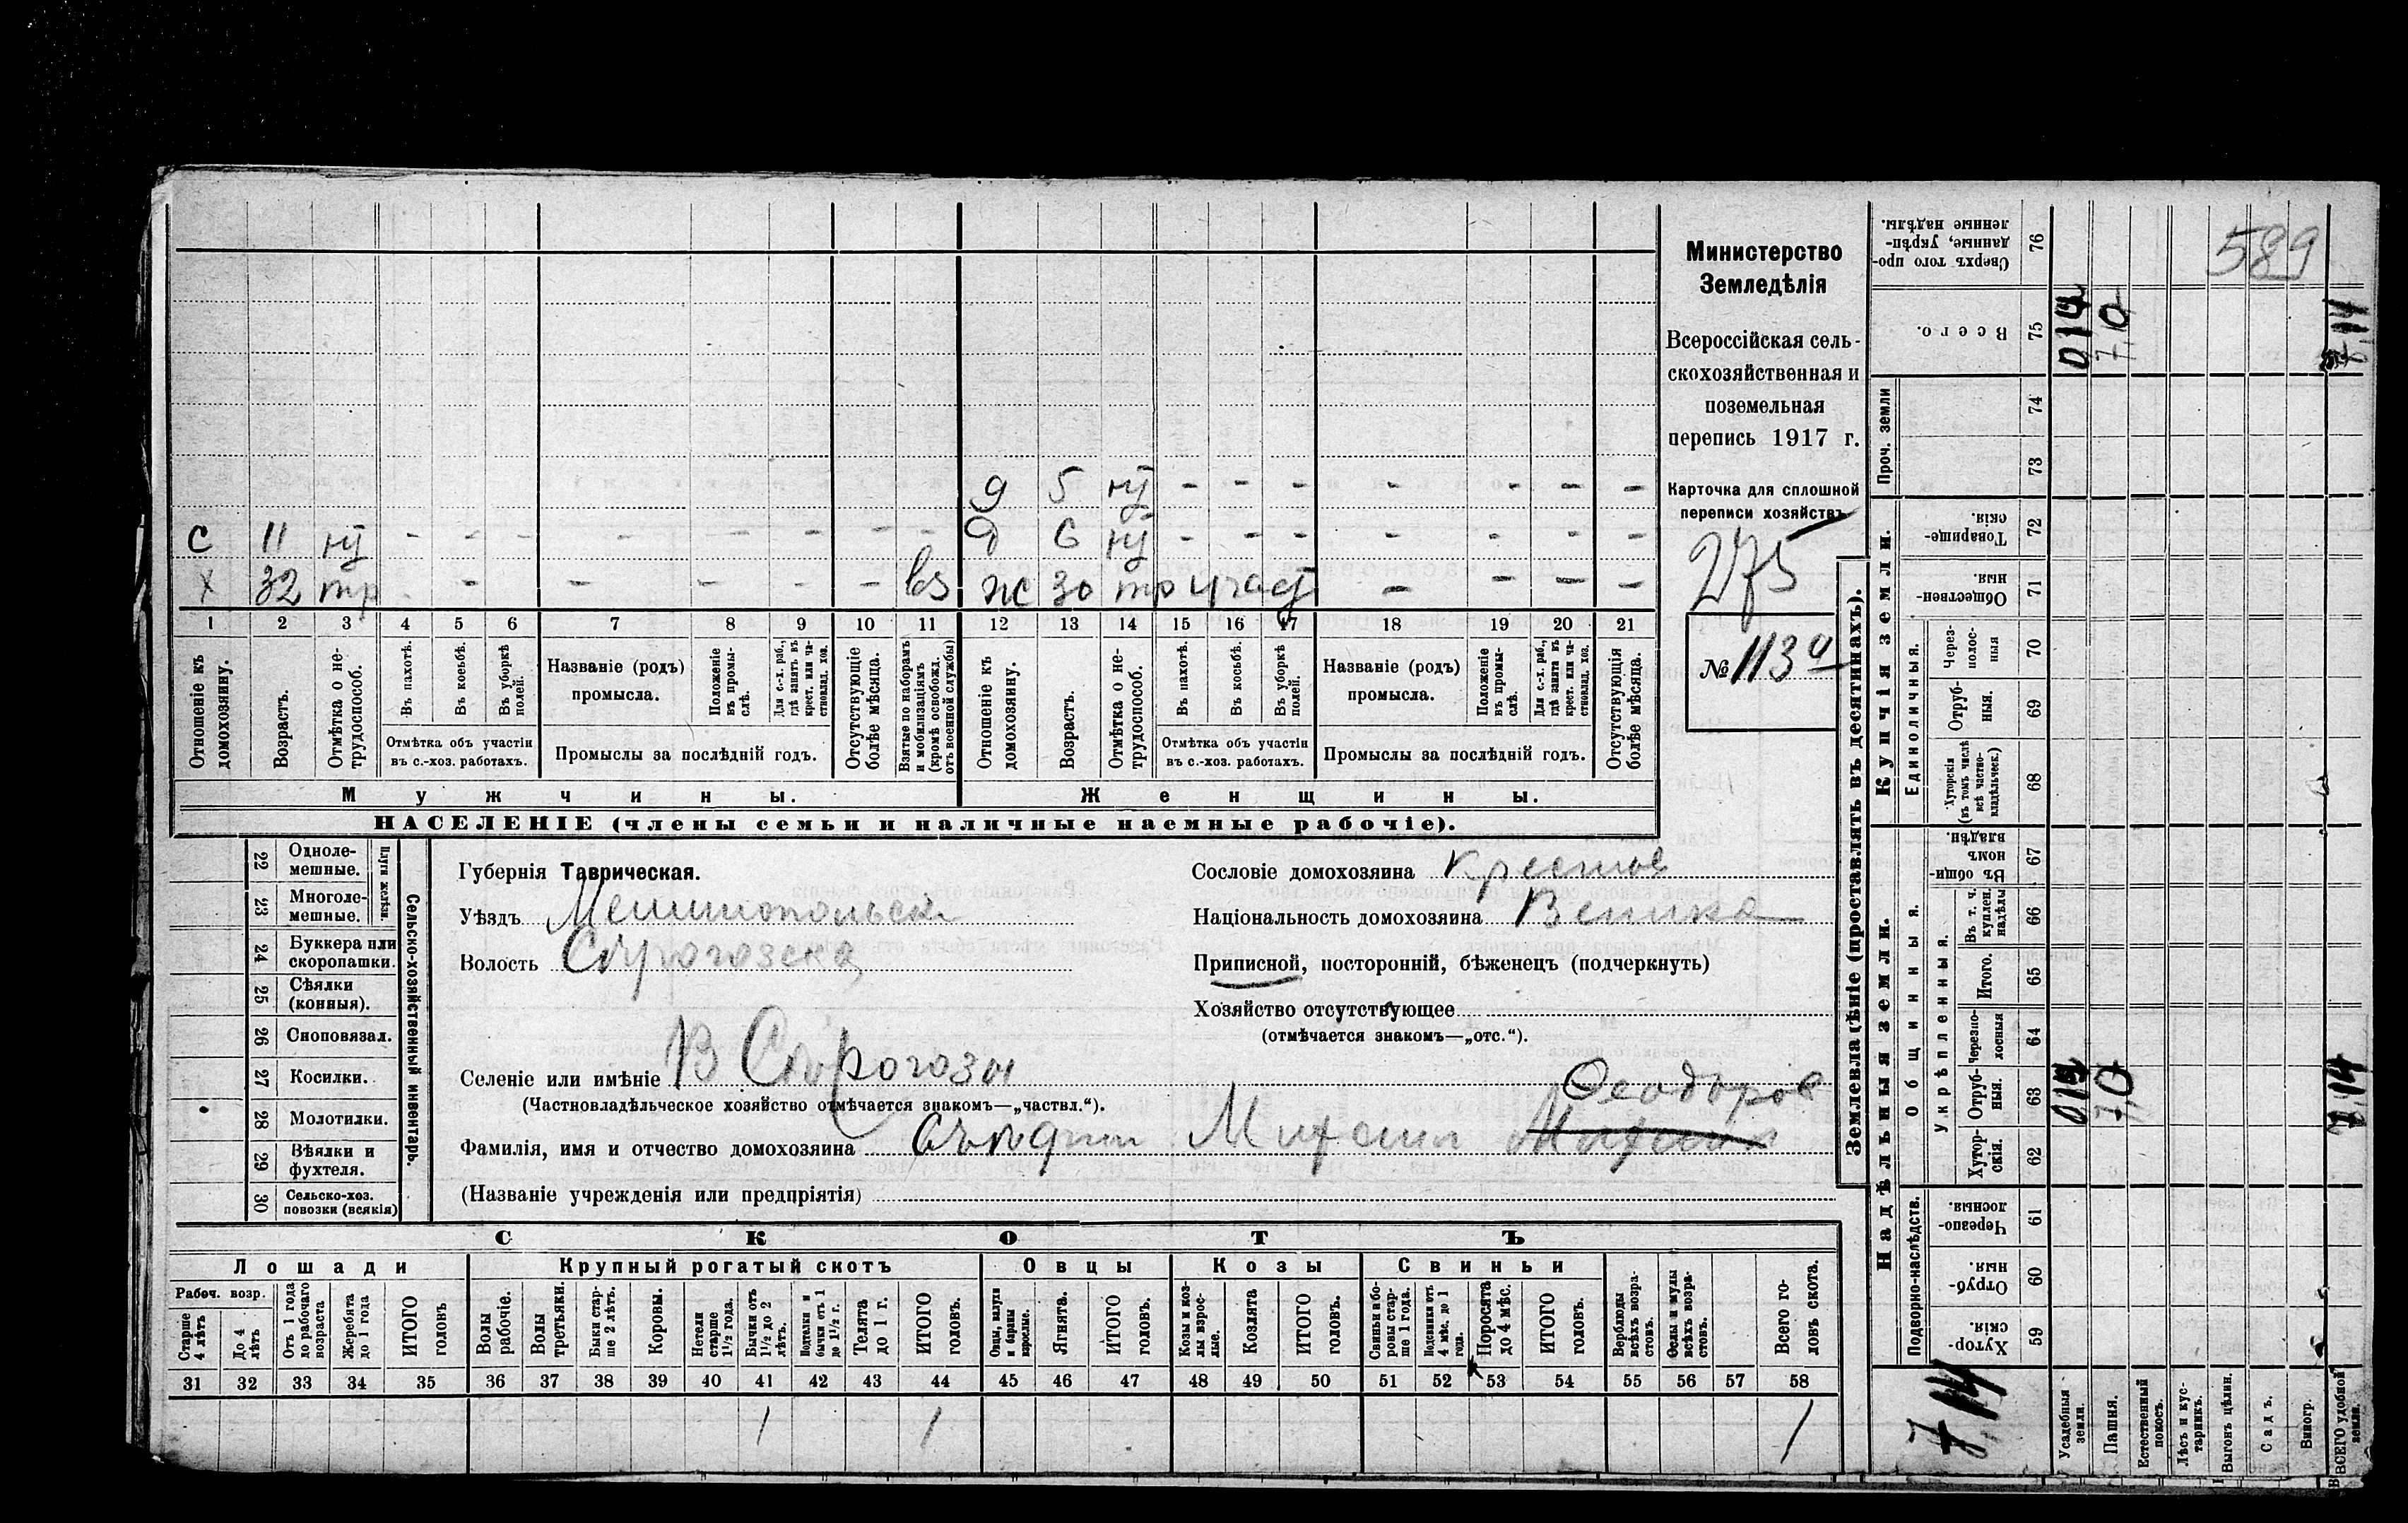 Министерство
Земледѣлія
Всероссійская сель-
скохозяйственная и
поземельная
перепись 1917 г.
Карточка для сплошной
переписи хозяйствъ
275
№ 113а
589
д 5 нт - - - - - - -
с 11 нт - - - - - - - - д 6 нт - - - - - - -
х 32 тр - - - - - вз ж 30 тр участ - - - -
1 2 3 4 5 6 7 8 9 10 11 12 13 14 15 16 17 18 19 20 21
Отношеніе къ домохозяину.
Возрастъ.
Отмѣтка о не-трудоспособ.
Въ пахотѣ.
Въ косьбѣ.
Въ уборкѣ полей.
Отмѣтка объ участіи
въ с.-хоз. работахъ.
Названіе (родъ)
промысла.
Положеніе въ промы-слѣ.
Для с.-х. раб., гдѣ занятъ въ крест. или ча-стновлад. хоз.
Промыслы за послѣдній годъ.
Отсутствующіе болѣе мѣсяца.
Взятые по наборамъ и мобилизаціямъ (кромѣ освобожд. отъ военной службы)
Отношеніе къ домохозяину.
Возрастъ.
Отмѣтка о не-трудоспособ.
Въ пахотѣ.
Въ косьбѣ.
Въ уборкѣ полей.
Отмѣтка объ участіи
въ с.-хоз. работахъ.
Названіе (родъ)
промысла.
Положеніе въ промы-слѣ.
Для с.-х. раб., гдѣ занятъ въ крест. или ча-стновлад. хоз.
Промыслы за послѣдній годъ.
Отсутствующія болѣе мѣсяца.
Мужчины. Женщины.
НАСЕЛЕНІЕ (члены семьи и наличные наемные рабочіе).
Сельско-хозяйственный инвентарь.
Плуги желѣзн.
22 Одноле-мешные.
23 Многоле-мешные.
24 Буккера или скоропашки.
25 Сѣялки (конныя).
26 Сноповязал.
27 Косилки.
28 Молотилки.
29 Вѣялки и фухтеля.
30 Сельско-хоз. повозки (всякія)
Губернія Таврическая.
Уѣздъ Мелитопольск
Волость
Селеніе или имѣніе В Сѣрогозы
(Частновладѣльческое хозяйство отмѣчается знакомъ—„частвл.“).
Фамилія, имя и отчество домохозяина Михаил Феодоров
(Названіе учрежденія или предпріятія)
Сословіе домохозяина
Національность домохозяина
Приписной, посторонній, бѣженецъ (подчеркнуть)
Хозяйство отсутствующее
(отмѣчается знакомъ—„отс.“).
СКОТЪ
Лошади Крупный рогатый скотъ Овцы Козы Свиньи
Рабоч. возр.
Старше 4 лѣтъ
До 4 лѣтъ
Отъ 1 года до рабочаго возраста
Жеребята до 1 года
ИТОГО головъ
Волы рабочіе.
Волы третьяки.
Быки стар-ше 2 лѣтъ.
Коровы.
Нетели старше 1½ года.
Бычки отъ 1½ до 2 лѣтъ.
Подтелки и бычки отъ 1 до 1½ г.
Телята до 1 г.
ИТОГО головъ.
Овцы, валухи и бараны взрослые.
Ягнята.
ИТОГО головъ.
Козы и коз-лы взрос-лые.
Козлята
ИТОГО головъ.
Свиньи и бо-ровы стар-ше 1 года.
Подсвинки отъ 4 мѣс. до 1 года.
Поросята до 4 мѣс.
ИТОГО головъ.
Верблюды всѣхъ возра-стовъ.
Ослы и мулы всѣхъ возра-стовъ.
Всего го-ловъ скота.
31 32 33 34 35 36 37 38 39 40 41 42 43 44 45 46 47 48 49 50 51 52 53 54 55 56 57 58
1 1 1
Землевладѣніе (проставлять въ десятинахъ).
Купчія земли.
Надѣльныя земли.
Проч. земли
Единоличныя.
Общинныя.
Укрѣпленныя.
Подворно-наслѣдств.
76 Сверхъ того про-данные, укрѣп-ленные надѣлы.
75 Всего. 7,0
74
73
72 Товарище-скія.
71 Обществен-ныя
70 Через-полос-ныя
69 Отруб-ныя.
68 Хуторскія (въ томъ числѣ всѣ частно-владѣльческ.)
67 Въ общи-номъ владѣн.
66 Въ т. ч. куплен. надѣлы
65 Итого.
64 Черезпо-лосныя
63 Отруб-ныя. 7,0
62 Хутор-скія.
61 Черезпо-лосныя
60 Отруб-ныя.
59 Хутор-скія
7,14
Усадебныя земли.
Пашня.
Естественный покосъ.
Лѣсъ и кус-тарникъ.
Выгонъ цѣлин.
Садъ.
Виногр.
ВСЕГО удобной земли.